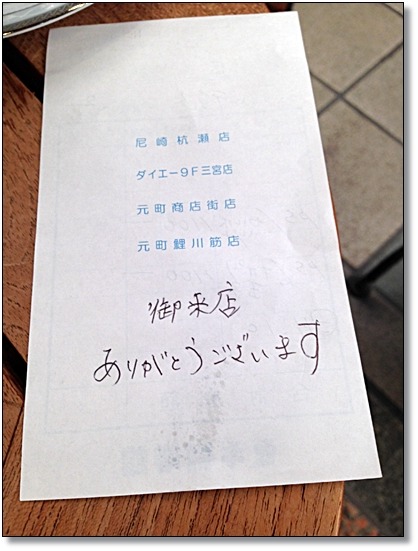 尼崎杭瀬店
ダイエー9F三宮店
元町商店街店
元町鯉川筋店
御来店
ありがとうございます